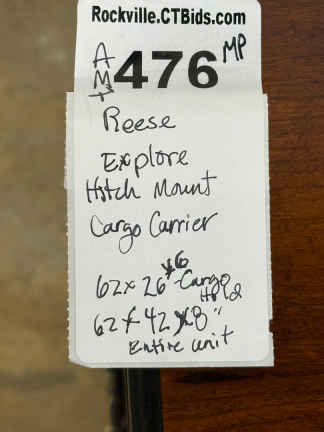 Rockville.CTBids.com
AMT 476 MP
Reese
Explore
Hitch Mount
Cargo Carrier
62x26x6-Cargo
Hold
62x42x8"
Entire unit